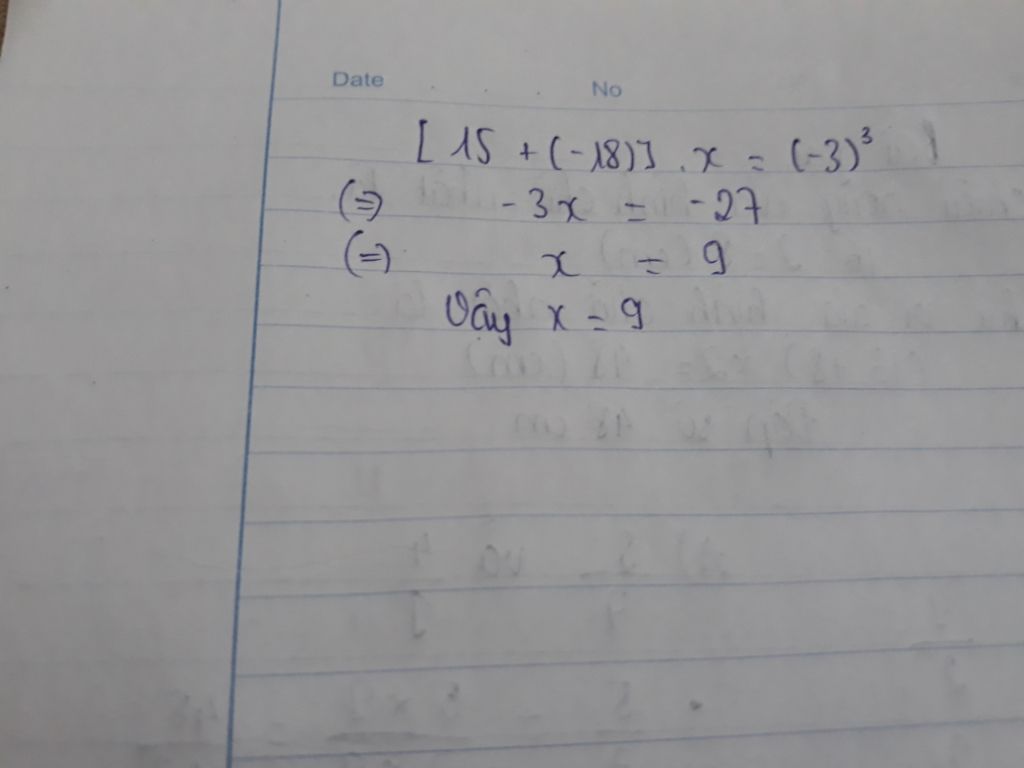 Date No
[15 + (-18)] . x = (-3)³
(=) -3x = -27
(=) x = 9
Vậy x = 9